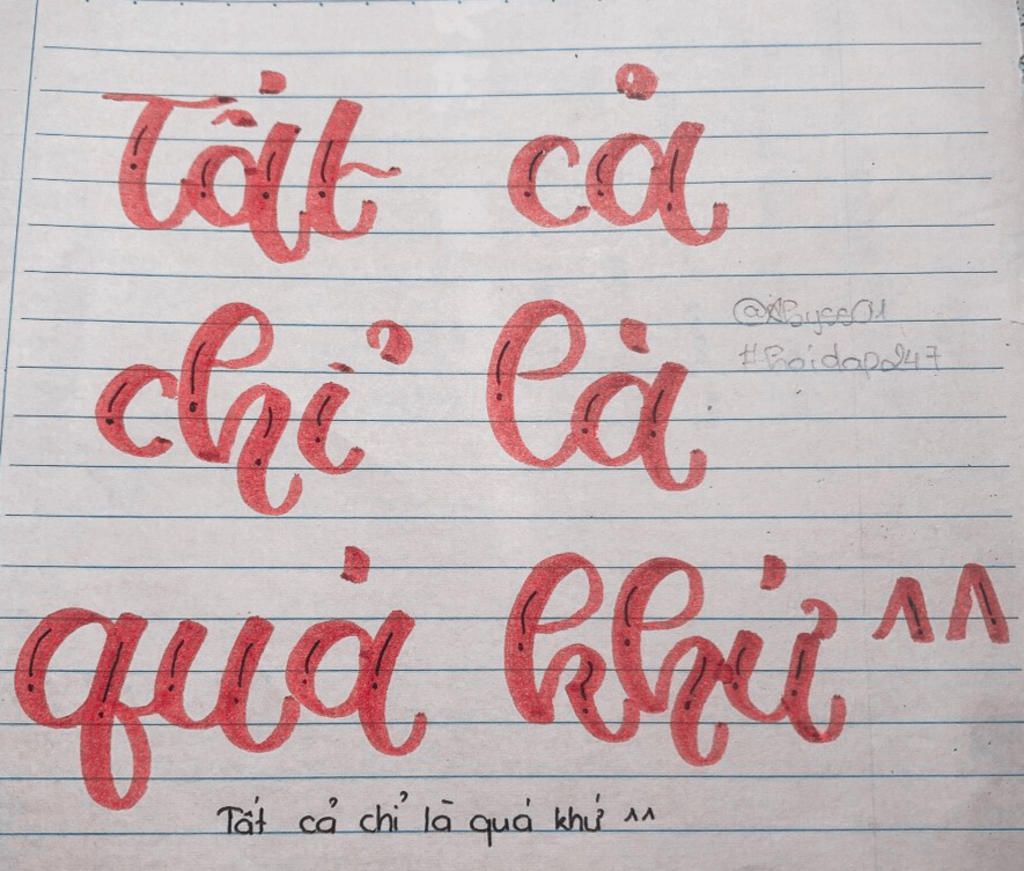 Tất cả
chỉ là
@Abyss01
#hoidap247
quá khứ ^^
Tất cả chỉ là quá khứ ^^